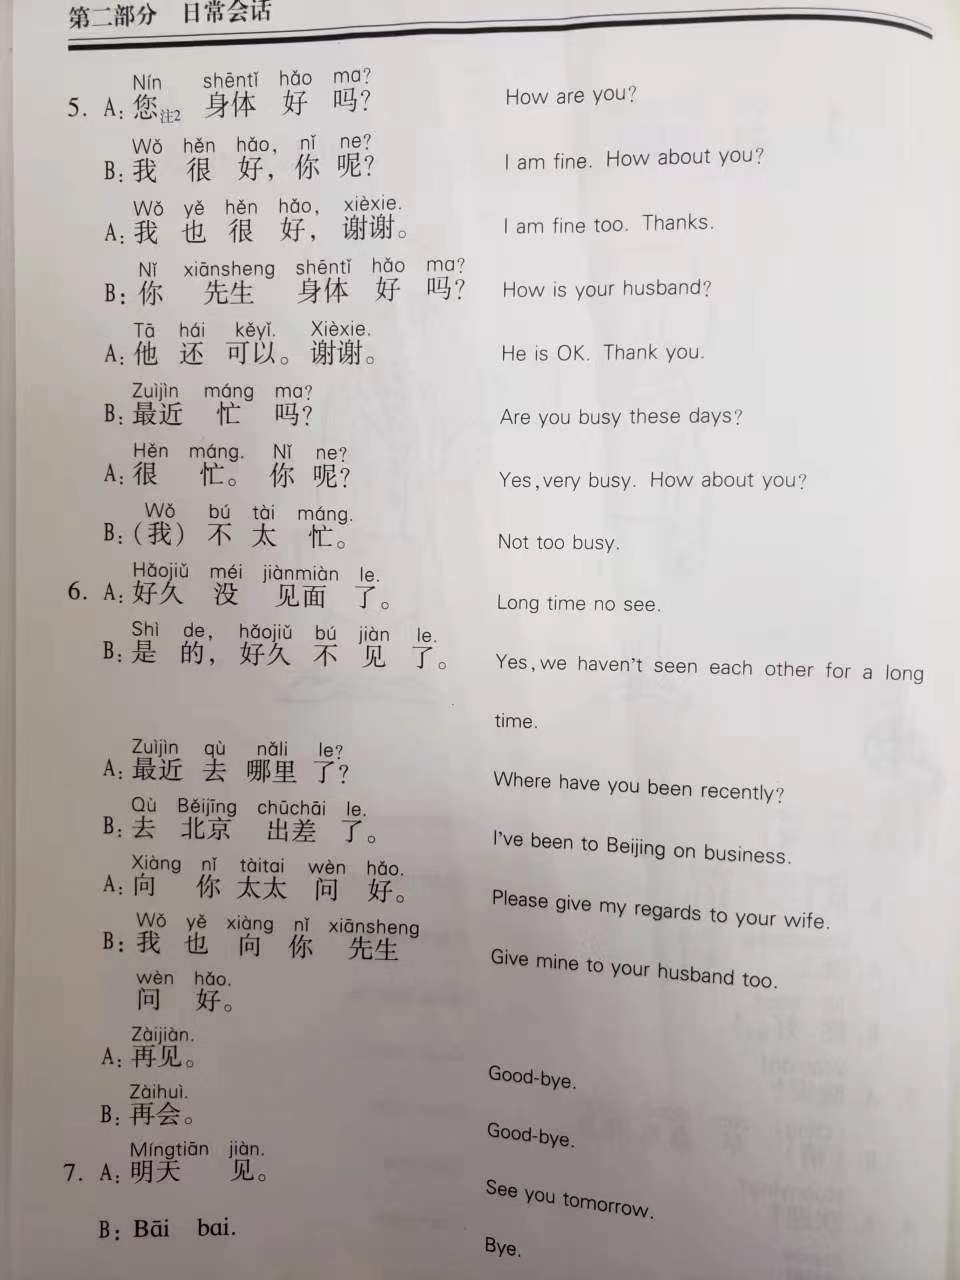 第二部分 日常会话
Nín shēntǐ hǎo ma?
5. A: 您注2 身体 好 吗? How are you?
Wǒ hěn hǎo, nǐ ne?
B: 我 很 好, 你 呢? I am fine. How about you?
Wǒ yě hěn hǎo, xièxie.
A: 我 也 很 好, 谢谢。 I am fine too. Thanks.
Nǐ xiānsheng shēntǐ hǎo ma?
B: 你 先生 身体 好 吗? How is your husband?
Tā hái kěyǐ. Xièxie.
A: 他 还 可以。 谢谢。 He is OK. Thank you.
Zuìjìn máng ma?
B: 最近 忙 吗? Are you busy these days?
Hěn máng. Nǐ ne?
A: 很 忙。 你 呢? Yes, very busy. How about you?
Wǒ bú tài máng.
B: (我) 不 太 忙。 Not too busy.
Hǎojiǔ méi jiànmiàn le.
6. A: 好久 没 见面 了。 Long time no see.
Shì de, hǎojiǔ bú jiàn le.
B: 是 的, 好久 不 见 了。 Yes, we haven't seen each other for a long
time.
Zuìjìn qù nǎli le?
A: 最近 去 哪里 了? Where have you been recently?
Qù Běijīng chūchāi le.
B: 去 北京 出差 了。 I've been to Beijing on business.
Xiàng nǐ tàitai wèn hǎo.
A: 向 你 太太 问 好。 Please give my regards to your wife.
Wǒ yě xiàng nǐ xiānsheng
B: 我 也 向 你 先生 Give mine to your husband too.
wèn hǎo.
问 好。
Zàijiàn.
A: 再见。 Good-bye.
Zàihuì.
B: 再会。 Good-bye.
Míngtiān jiàn.
7. A: 明天 见。 See you tomorrow.
B: Bāi bai. Bye.